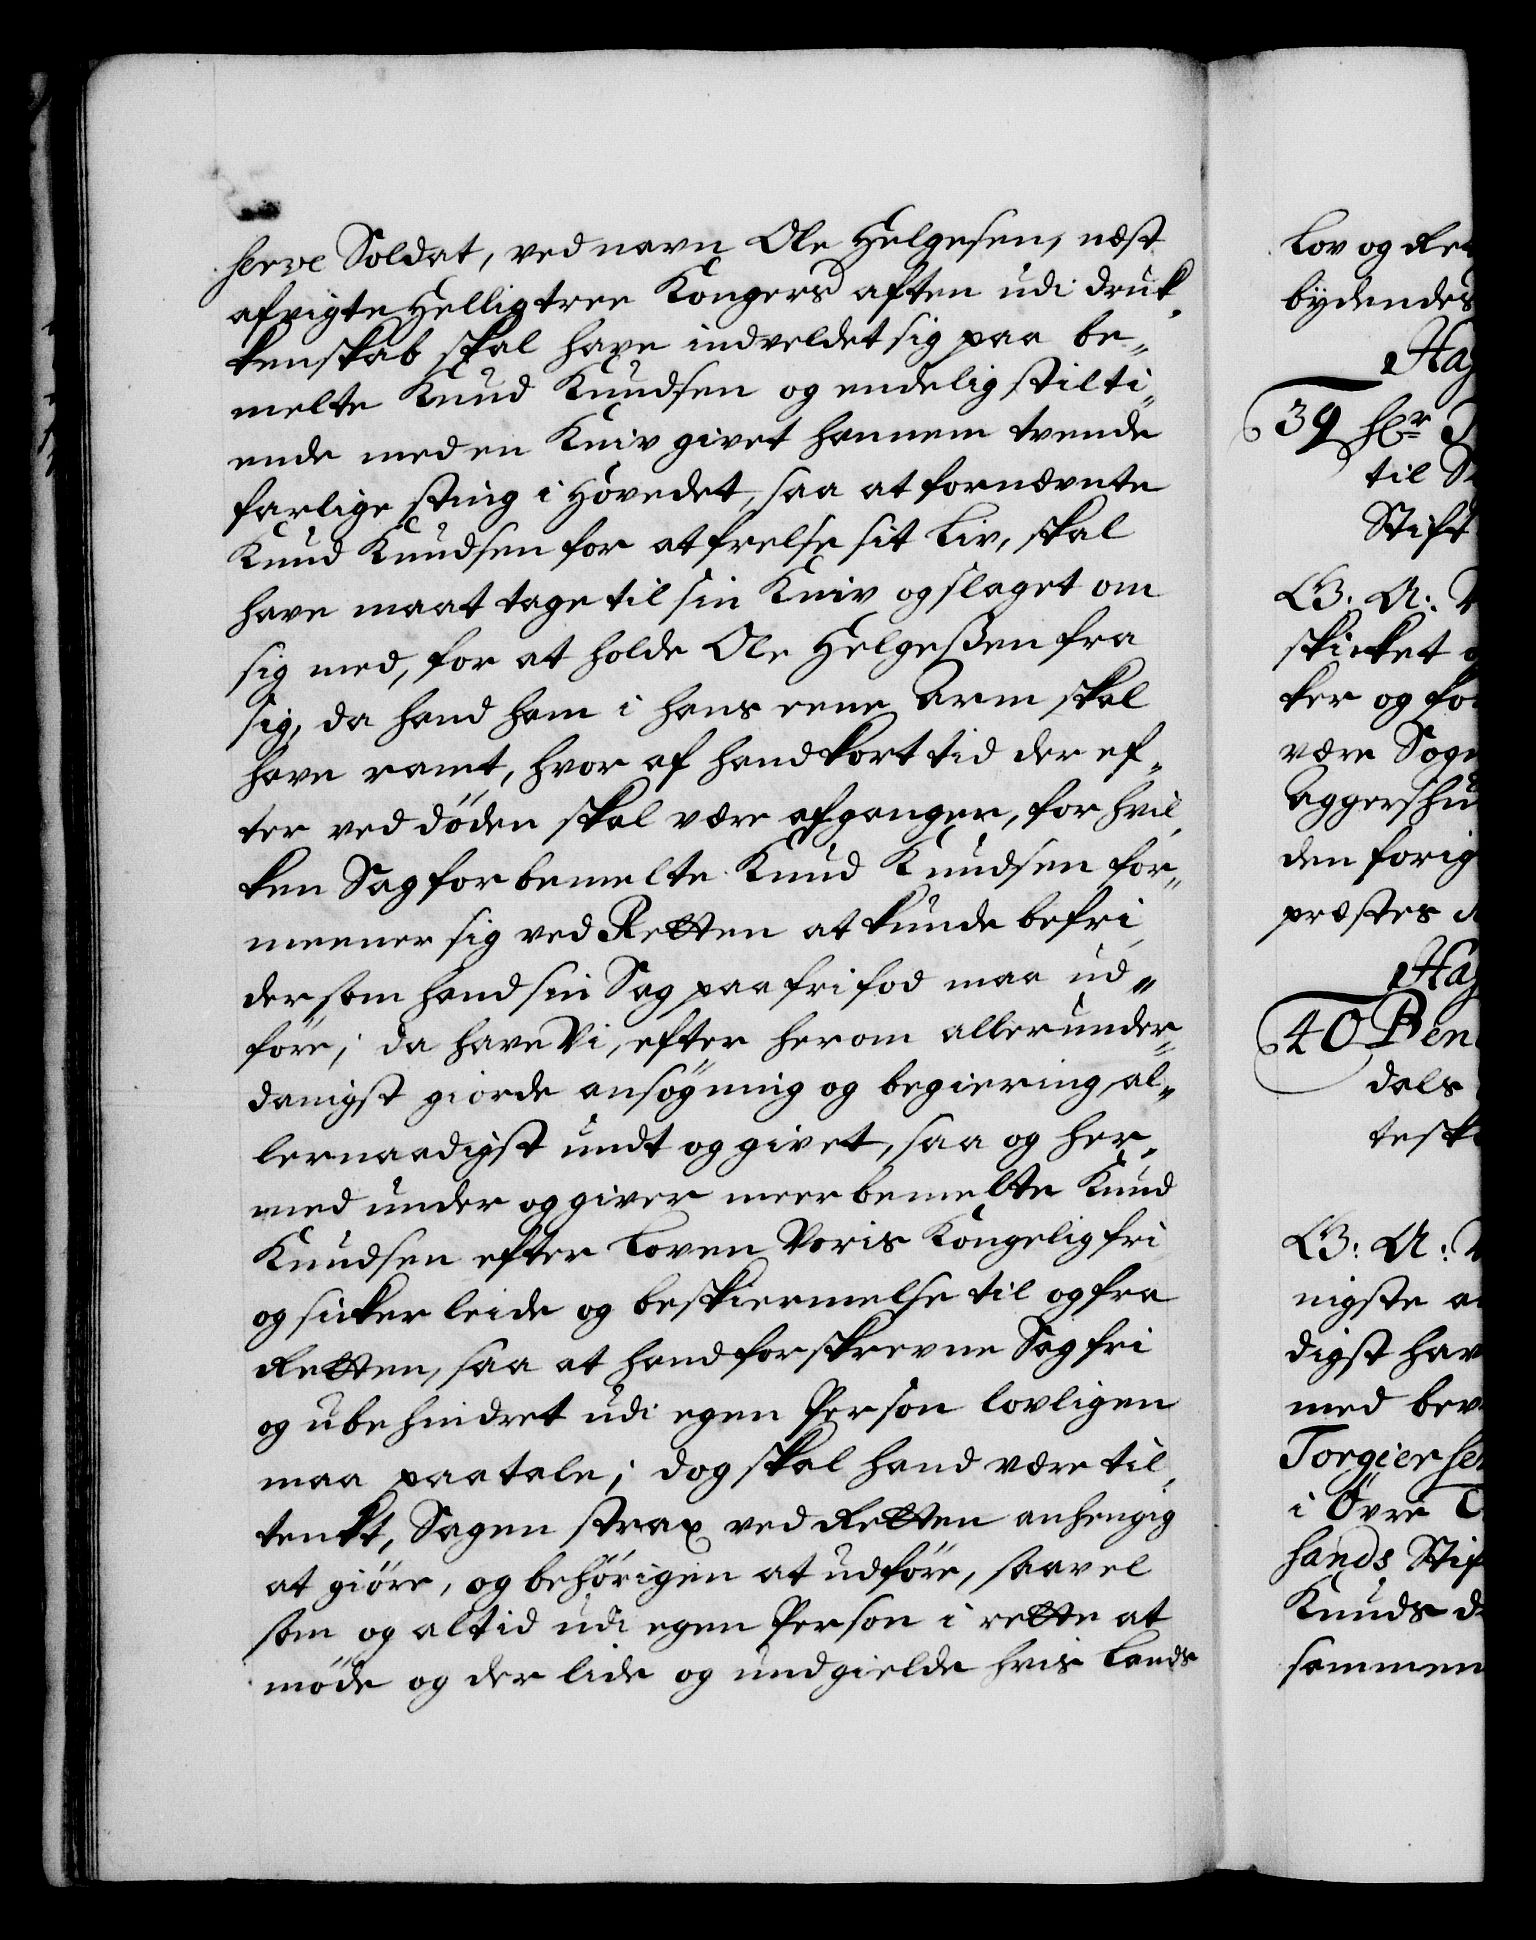 serve Soldat, ved navn Ole Helgesen, næst
afvigte Hellig tree Kongers aften udi druk„
kenskab skal have indveldet sig paa be„
melte Knud Knudsen og endelig stilti„
ende med en Kniv givet hannem tvende
farlige sting i Hovedet, saa at fornevnte
Knud Knudsen for at frelse sit Liv, skal
have maat tage til sin Kniv og slaget om
sig med, for at holde Ole Helgeßen fra
sig, da hand ham i hans eene Arm skal
have ramt, hvor af hand kort tid der ef„
ter ved döden skal være afgangen, for hvil„
ken Sag forbemelte Knud Knudsen for„
meener sig ved Retten at kunde befri,
dersom hand sin Sag paa fri fod maa ud„
före; da have Vi, efter herom allerunder„
danigst giorde ansögning og begiering, al„
lernaadigst undt og givet, saa og her„
med under og giver meerbemelte Knud
Knudsen efter Loven Voris Kongelig fri
og sicker leide og beskiermelse til og fra
Retten, saa at hand forskrevne Sag fri
og ubehindret udi egen Person lovligen
maa paatale; dog skal hand være til„
tenkt, Sagen strax ved Retten anhengig
at giöre, og behörigen at udföre, saavel
som og altid udi egen Person i rette at
möde og der lide og undgielde hvis Lands
Lov og Ret
bydendes
39 Hr
til
Stift
G: A: V
skicket
ker og for
være Sogn
Aggershu
den forig
præstes
40 Ben
dals
G: A: V
nigste
digst hav
med bev
Torgiersen
i Övre
sands Stif
Knuds d
sammen